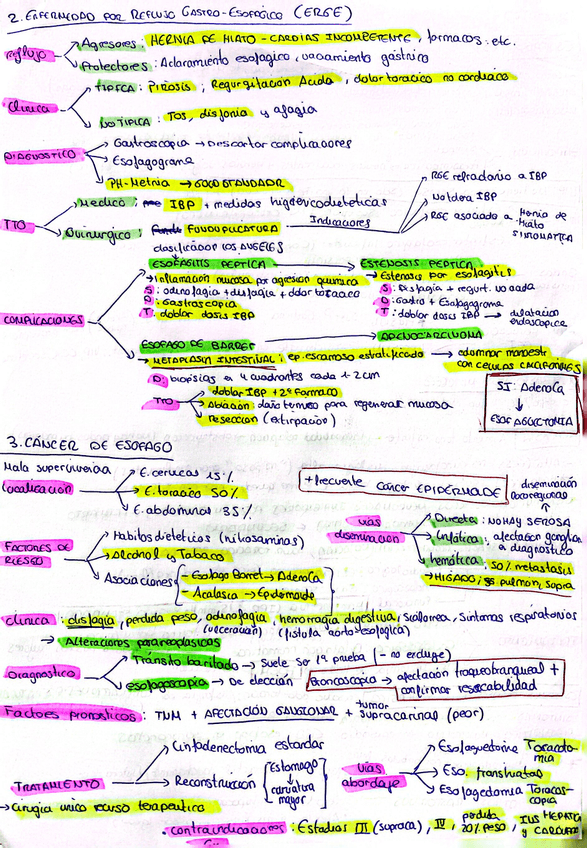 2. ENFERMEDAD POR REFLUJO GASTRO-ESOFÁGICO (ERGE)
Reflujo
Agresores: HERNIA DE HIATO - CARDIAS INCOMPETENTE, farmacos etc.
Protectores: Aclaramiento esofagico, vaciamiento gastrico
Clinica
TIPICA: Pirosis, Regurgitación Acida, dolor toracico no cardiaco
NO TIPICA: Tos, disfonia y afagia
DIAGNOSTICO
Gastroscopia → Descartar complicaciones
Esofagograma
PH-Metria → GOLD STANDAR
TTO
Medico: IBP + medidas higienicodieteticas
Quirurgico: FUNDUPLICATURA Indicaciones
RGE refractario a IBP
No tolera IBP
RGE asociado a Hernia de Hiato SINTOMATICA
COMPLICACIONES
clasificación LOS ANGELES
ESOFAGITIS PEPTICA → ESTENOSIS PEPTICA
→ Inflamacion mucosa por agresion quimica
S: odinofagia + disfagia + dolor toracico
D: Gastroscopia
T: doblar dosis IBP
→ Estenosis por esofagitis
S: Disfagia + regurt. no acida
D: Gastro + Esofagograma
T: doblar dosis IBP → dilatacion endoscopica
ESOFAGO DE BARRET → ADENOCARCINOMA
→ METAPLASIA INTESTINAL: ep. escamoso estratificado → columnar monoestr con CELULAS CALICIFORMES
D: biopsias en 4 cuadrantes cada 1-2cm
TTO
doblar IBP + 2º Farmaco
Ablación: daño termico para regenerar mucosa
resección (extirpacion)
SI: AdenoCa
↓
ESOFAGUECTOMIA
3. CÁNCER DE ESOFAGO
Mala supervivencia
Localización
E. cervical 15%
E. toracico 50%
E. abdominal 35%
+ frecuente cáncer EPIDERMOIDE
vias diseminación
Directa: NO HAY SEROSA
diseminación locoregional
linfatica: afectacion ganglion a diagnostico
hematica: 50% metastasis
→ HIGADO, pulmon, supra
FACTORES DE RIESGO
Habitos dieteticos (nitrosaminas)
Alcohol y Tabaco
Asociaciones
- Esofago Barret → AdenoCa
- Acalasia → Epidermoide
clinica: disfagia, perdida peso, odinofagia (ulceración), hemorragia digestiva (fistula aorto-esofagica), sialorrea, Sintomas respiratorios
→ Alteraciones paraneoplasicas
Diagnostico
Tránsito baritado → Suele ser 1ª prueba (- no excluye)
esofagoscopia → De elección
Broncoscopia → afectación traqueobronqueal + confirmar resecabilidad
Factores pronosticos: TNM + AFECTACIÓN GANGLIONAR + tumor supracarinal (peor)
TRATAMIENTO
→ Cirugia unico recurso terapeutico
Linfadenectomia estandar
Reconstrucción
Estomago
↓
curvatura mayor
vias abordaje
Esofaguectomia Toracotomia
Eso. transhiatal
Esofagectomia Toracoscopia
contraindicaciones: Estadios III (supraca), IV, perdida 20% peso, INS HEPATICA y CARDIACA